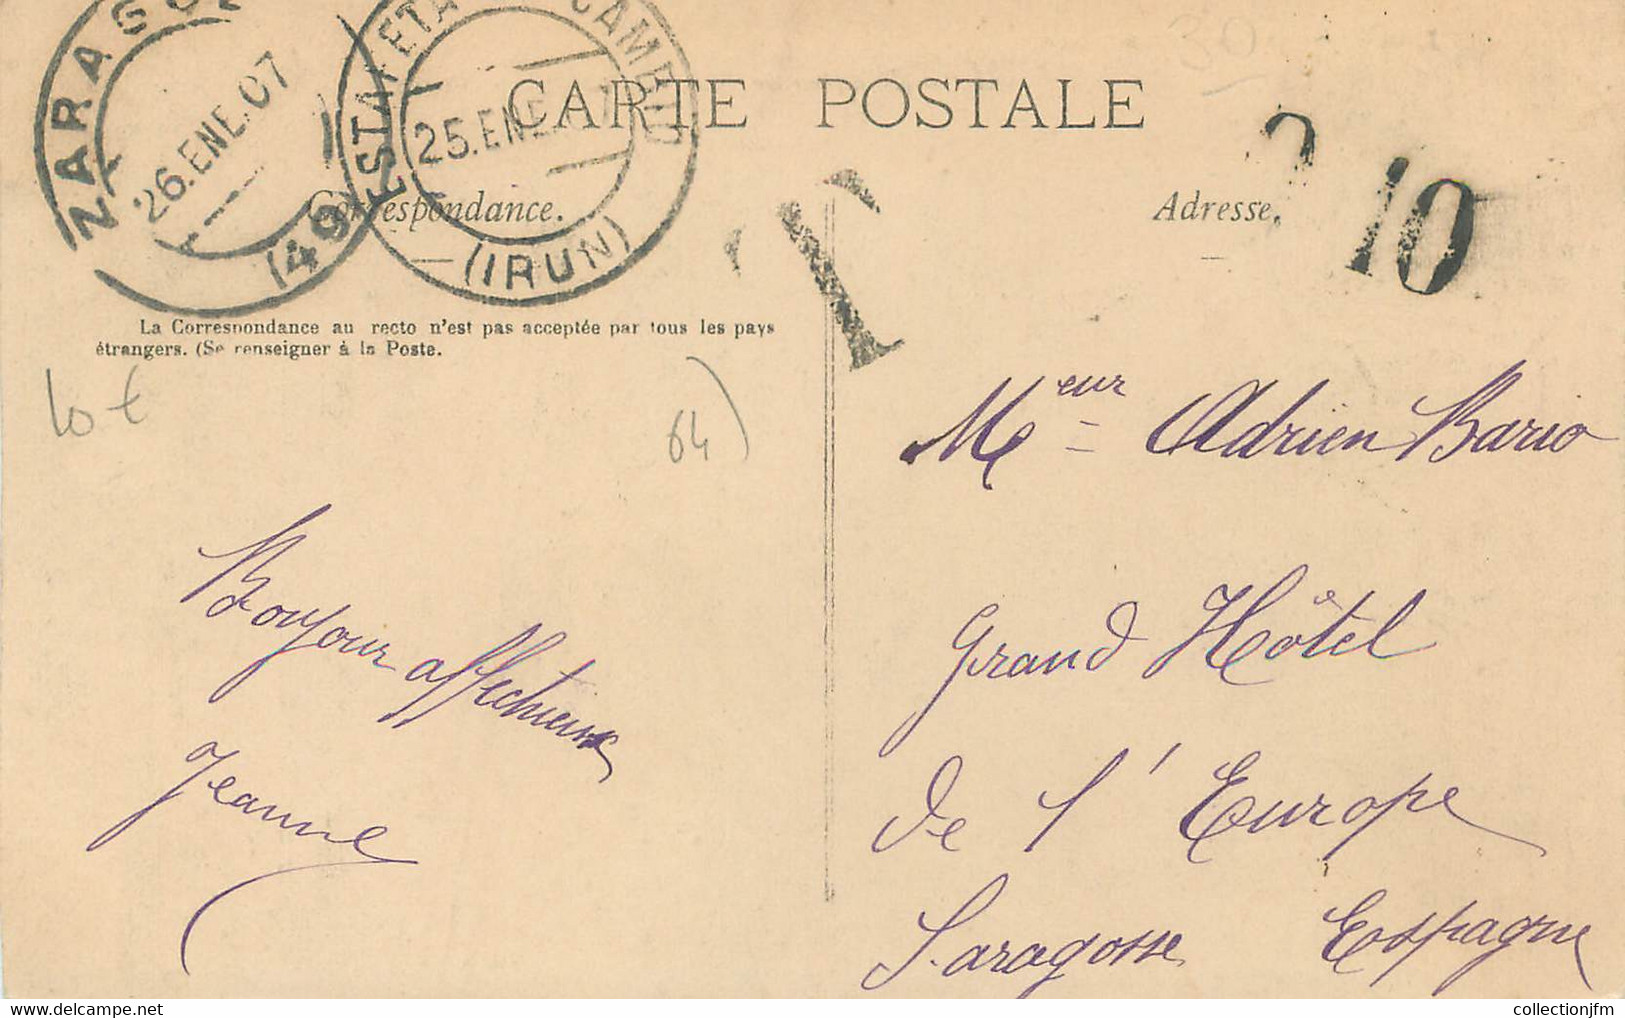 CARTE POSTALE
ZARAGOZ
26.ENE.07
(49)
ESTAFETA CAMBIO
25.ENE.07
(IRUN)
T
10
Correspondance.
Adresse.
La Correspondance au recto n'est pas acceptée par tous les pays
étrangers. (Se renseigner à la Poste.
10 €
64)
Bonjour affectueux
Jeanne
Meur = Adrien Bario
Grand Hôtel
de l'Europe
Saragosse Espagne
collectionjfm